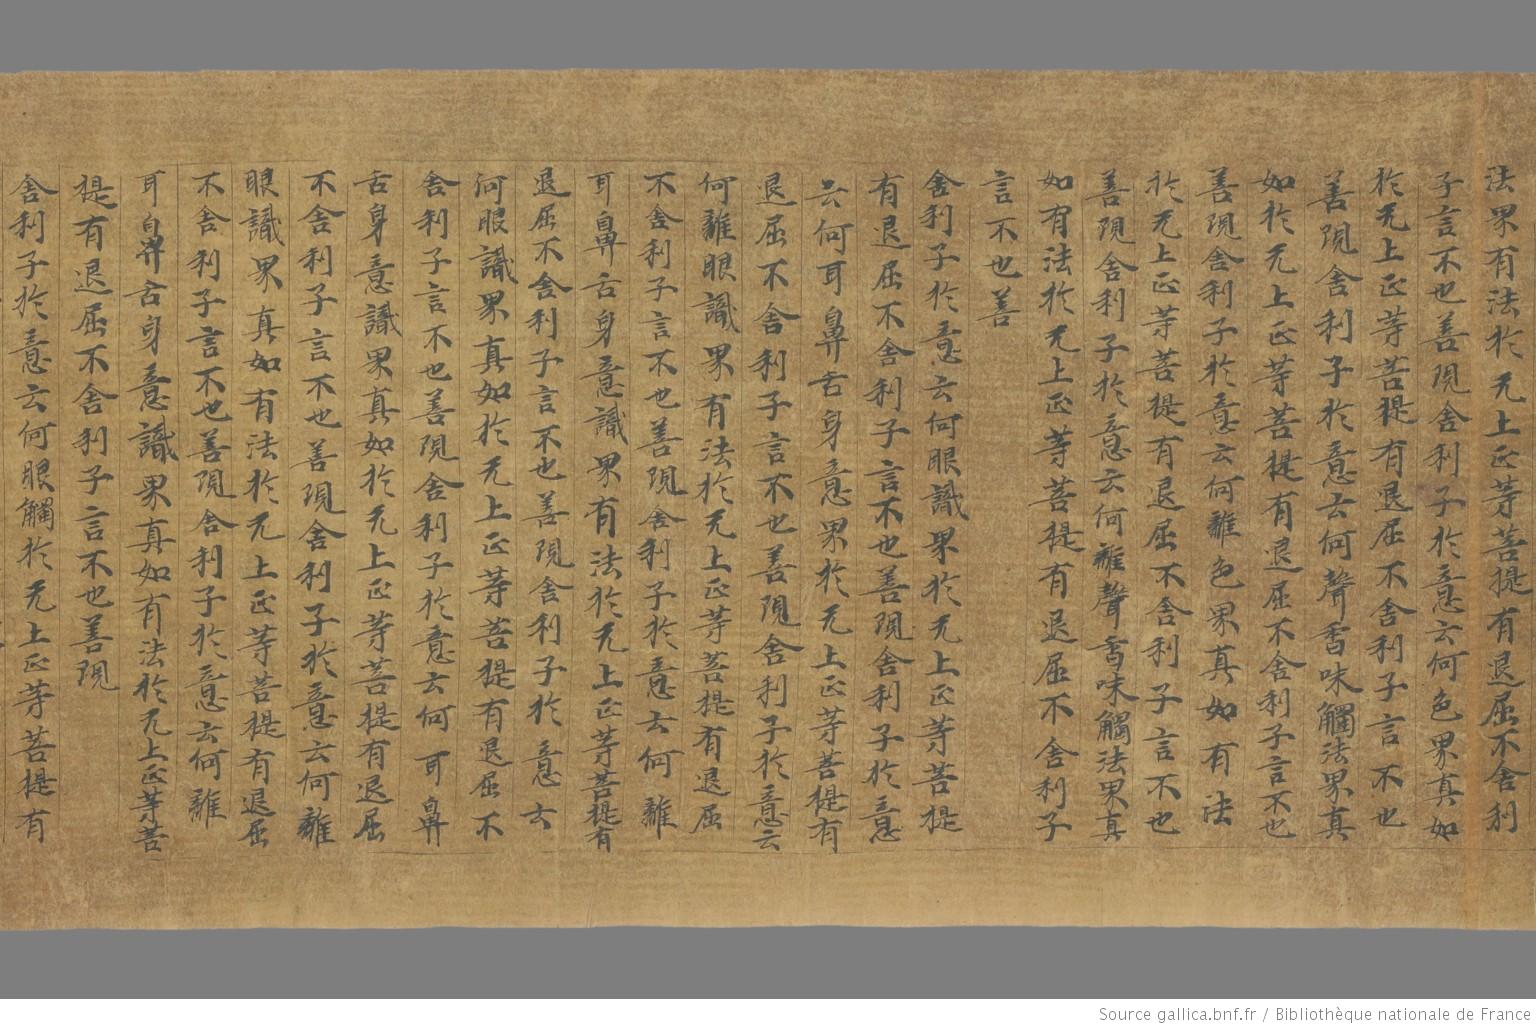 法界有法於无上正等菩提有退屈不舍利
子言不也善現舍利子於意云何色界真如
於无上正等菩提有退屈不舍利子言不也
善現舍利子於意云何聲香味觸法界真
如於无上正等菩提有退屈不舍利子言不也
善現舍利子於意云何離色界真如有法
於无上正等菩提有退屈不舍利子言不也
善現舍利子於意云何離聲香味觸法界真
如有法於无上正等菩提有退屈不舍利子
言不也善
舍利子於意云何眼識界於无上正等菩提
有退屈不舍利子言不也善現舍利子於意
云何耳鼻舌身意界於无上正等菩提有
退屈不舍利子言不也善現舍利子於意云
何離眼識界有法於无上正等菩提有退屈
不舍利子言不也善現舍利子於意云何離
耳鼻舌身意識界有法於无上正等菩提有
退屈不舍利子言不也善現舍利子於意云
何眼識界真如於无上正等菩提有退屈不
舍利子言不也善現舍利子於意云何耳鼻
舌身意識界真如於无上正等菩提有退屈
不舍利子言不也善現舍利子於意云何離
眼識界真如有法於无上正等菩提有退屈
不舍利子言不也善現舍利子於意云何離
耳鼻舌身意識界真如有法於无上正等菩
提有退屈不舍利子言不也善現
舍利子於意云何眼觸於无上正等菩提有
Source gallica.bnf.fr / Bibliothèque nationale de France